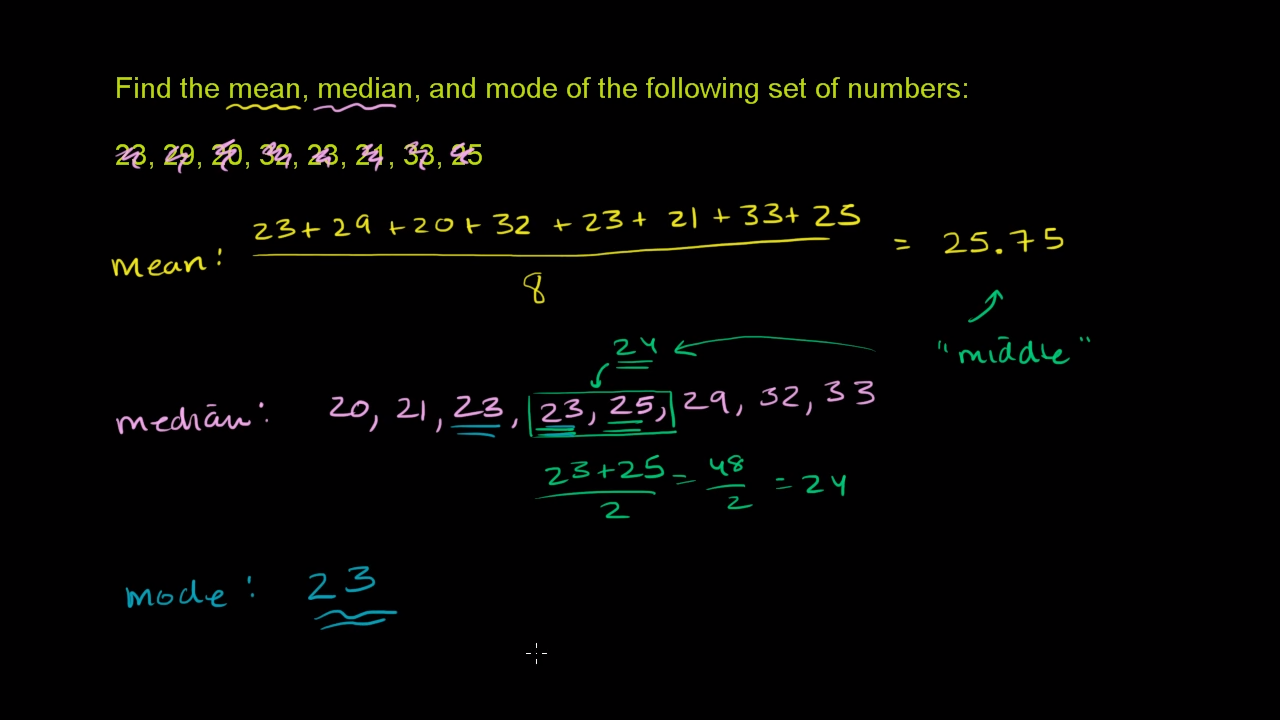 Find the mean, median, and mode of the following set of numbers:
23, 29, 20, 32, 23, 21, 33, 25
23+ 29 +20+ 32 + 23+ 21 + 33+ 25
mean:
8
= 25.75
24
"middle"
median: 20, 21, 23, 23, 25, 29, 32, 33
23+25
2
= 48
2
= 24
mode: 23